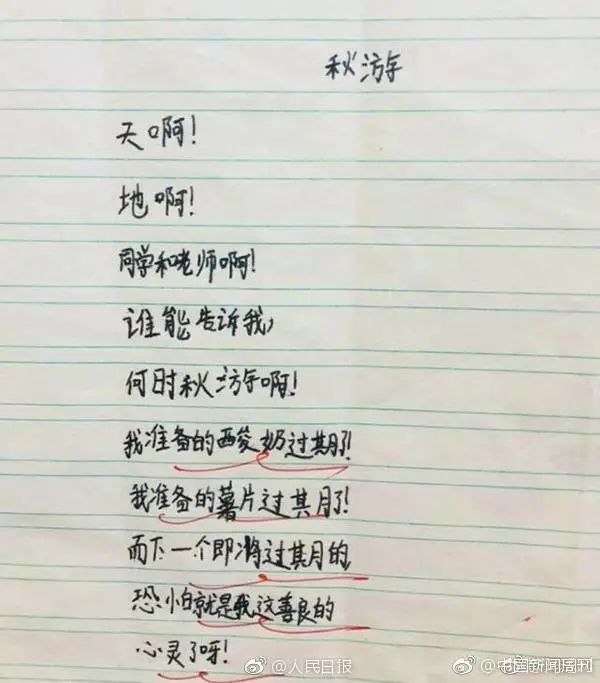 秋游
天啊!
地啊!
同学和老师啊!
谁能告诉我,
何时秋游啊!
我准备的酸奶过期了!
我准备的薯片过期了!
而下一个即将过期的
恐怕就是我这善良的
心灵了呀!
@人民日报
@中国新闻周刊